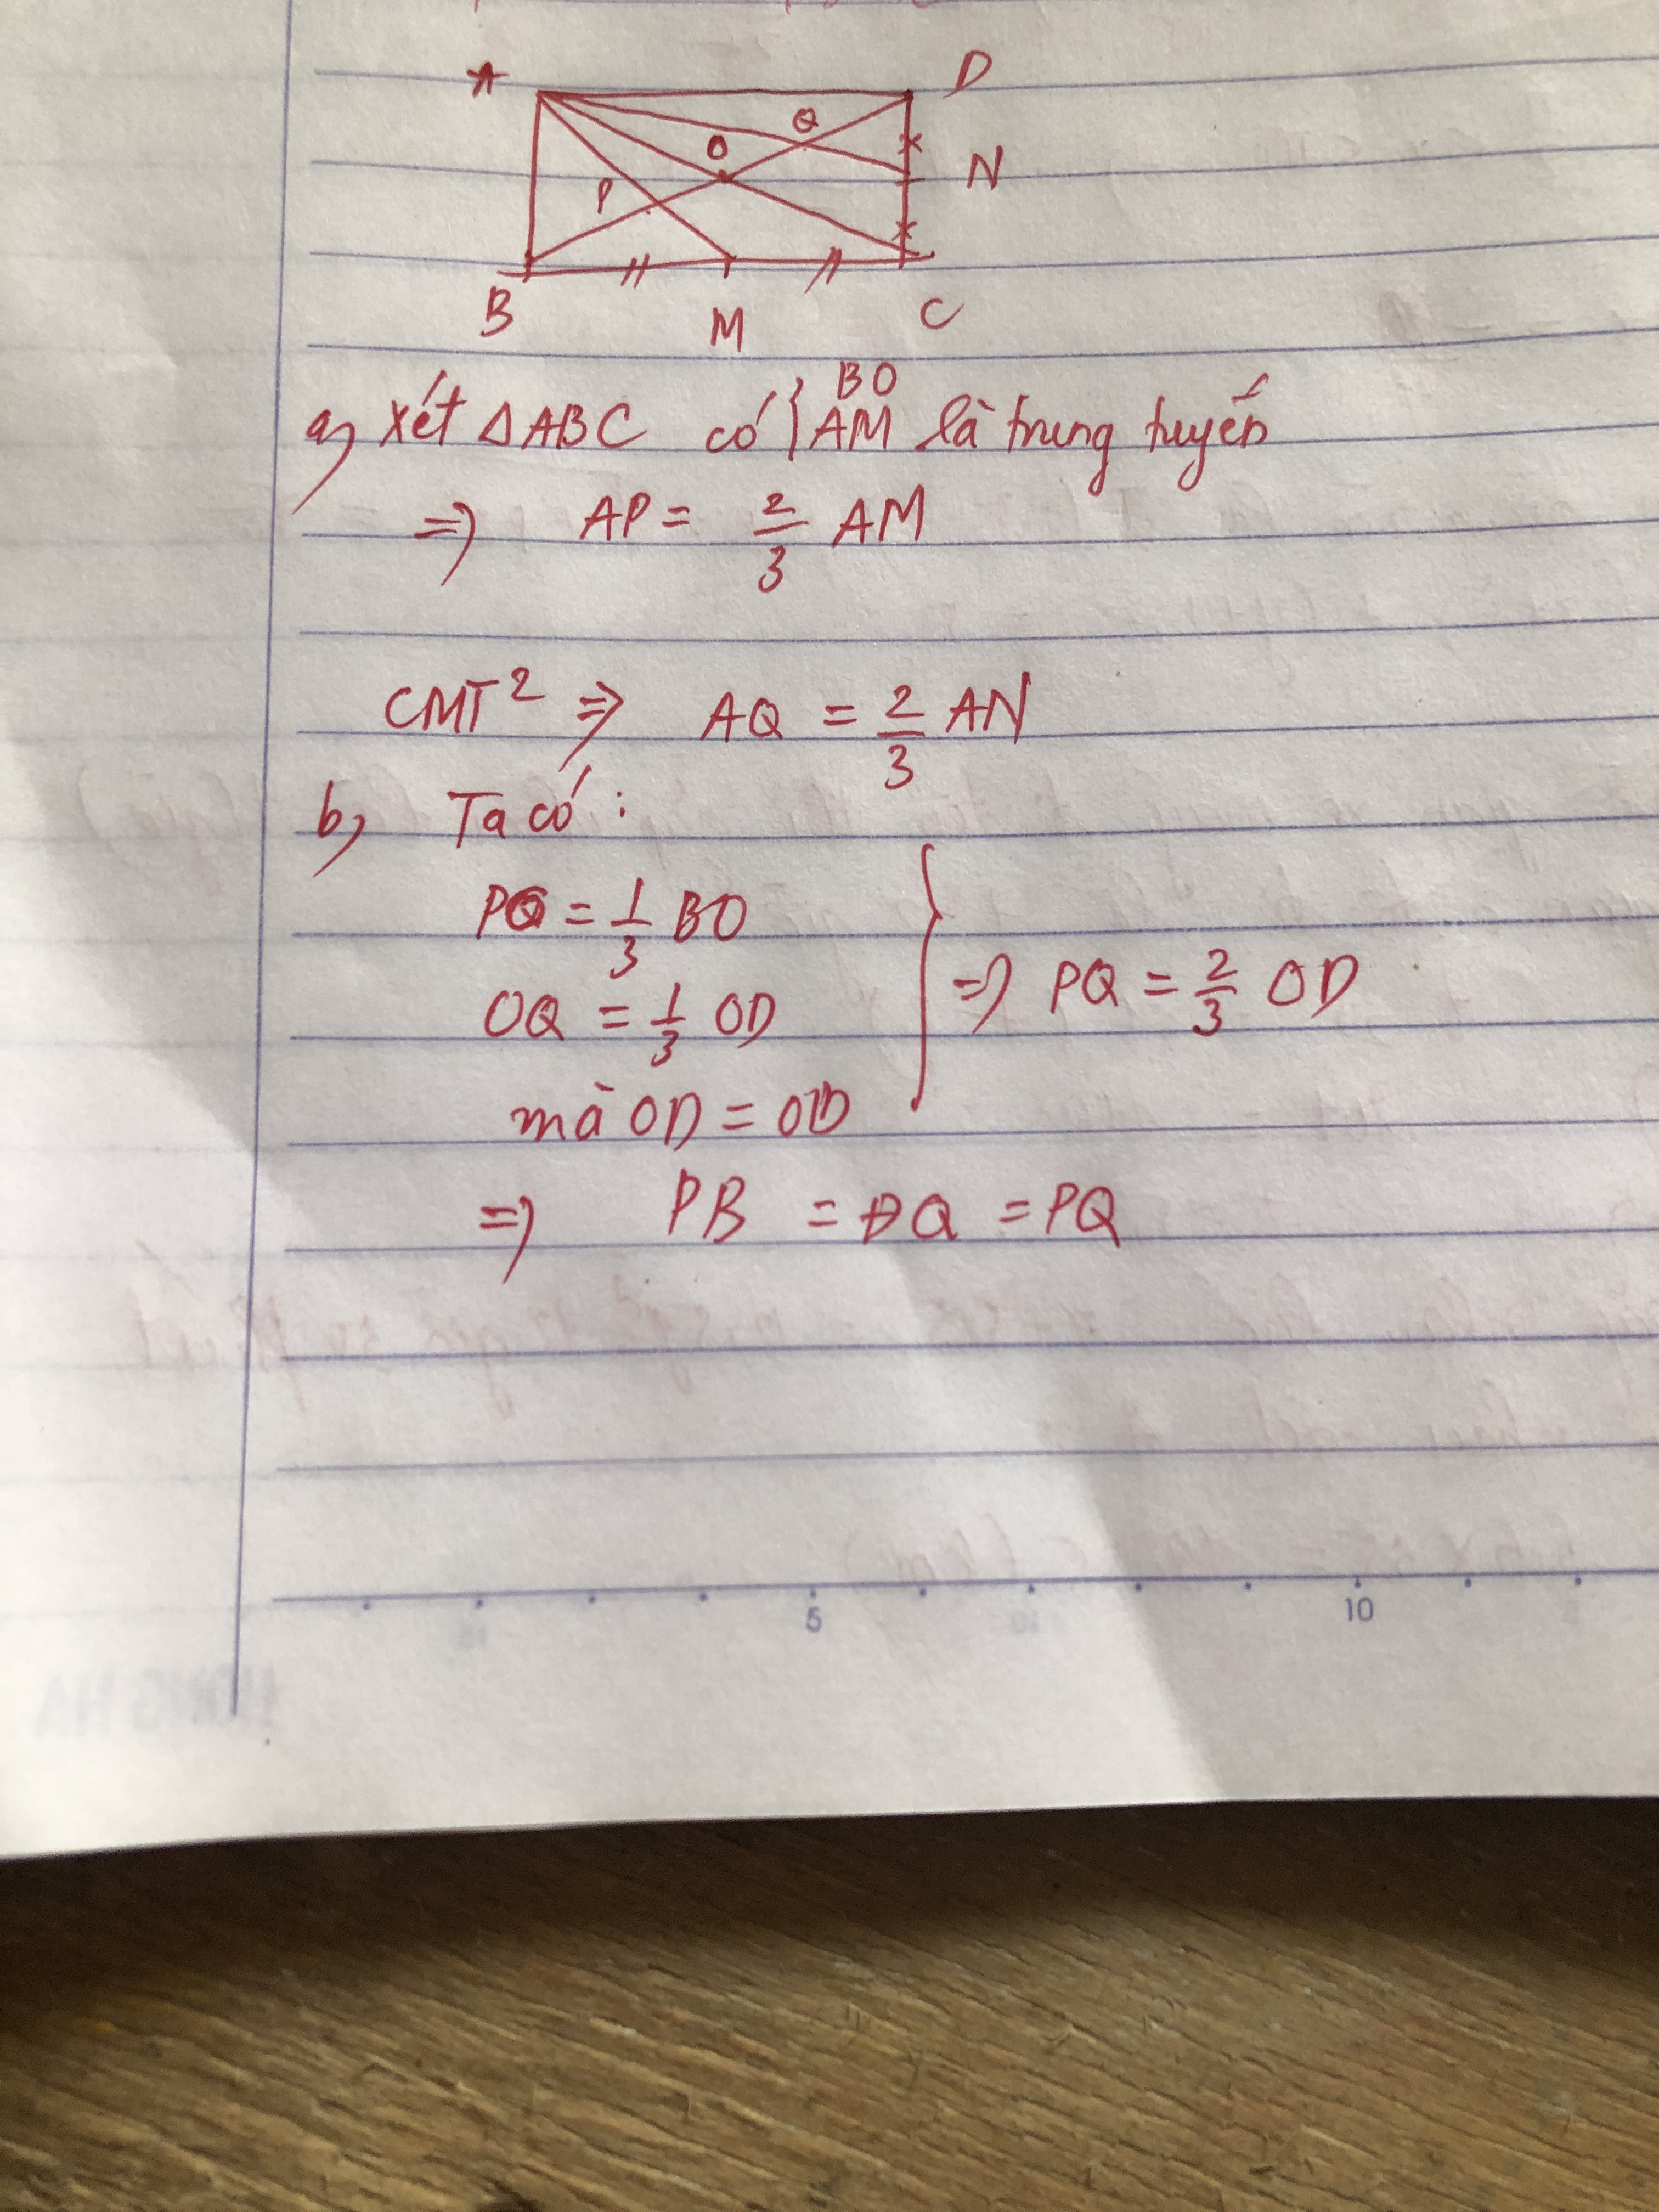 A D
Q
O
N
P
B M C
BO
a) Xét ΔABC có { AM là trung tuyến
=> AP = 2/3 AM
CMT² => AQ = 2/3 AN
b) Ta có :
PO = 1/3 BO
OQ = 1/3 OD
=> PQ = 2/3 OD
mà OD = OB
=> PB = DQ = PQ
5 10